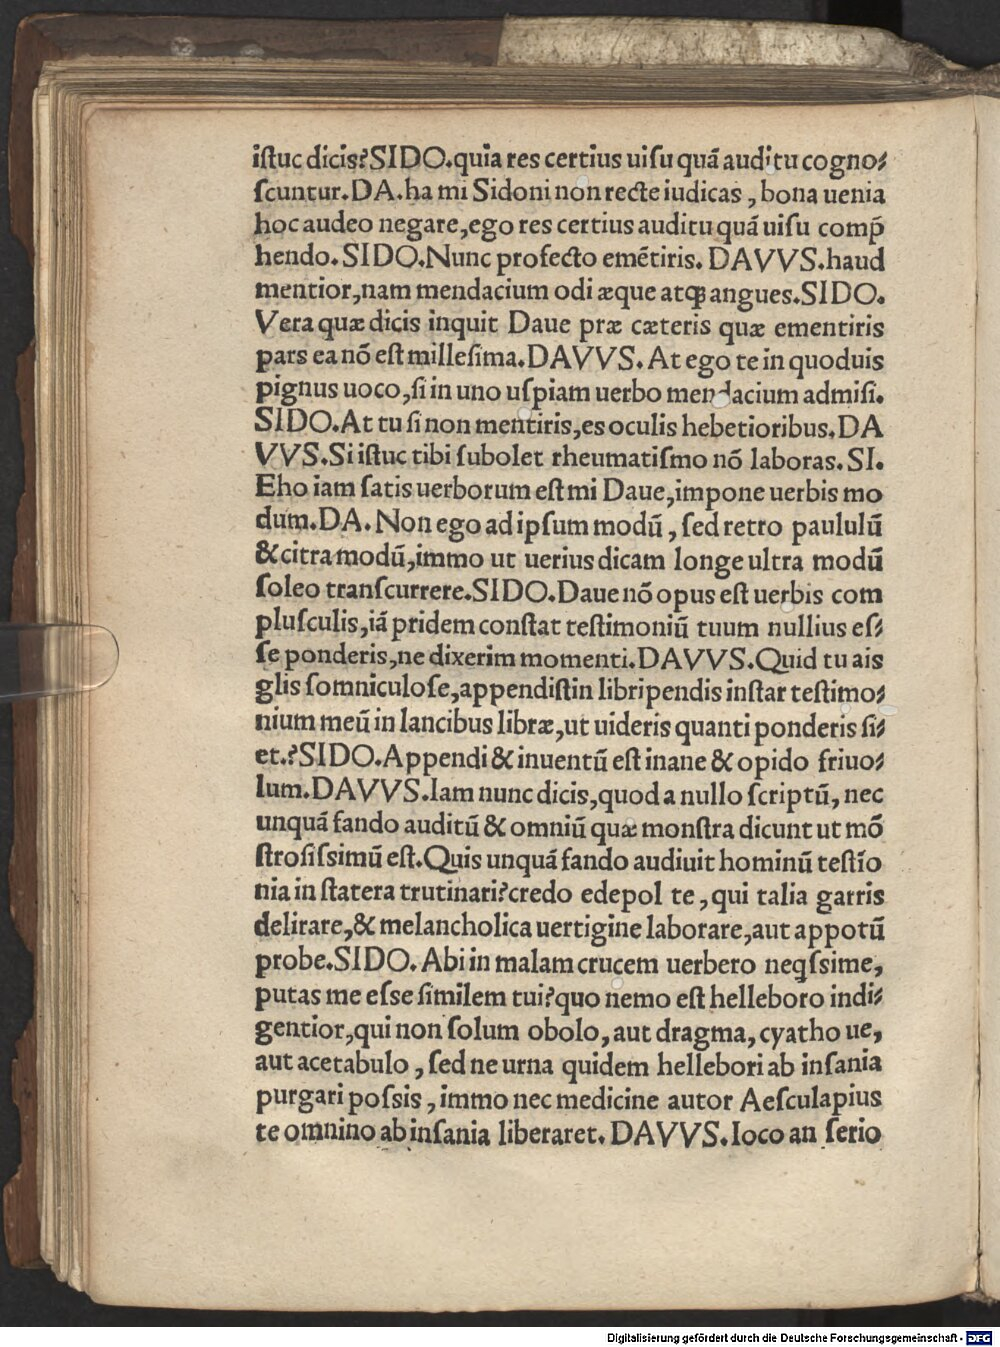 iſtuc dicis?SIDO.quia res certius uiſu quā auditu cogno⸗
ſcuntur.DA.ha mi Sidoni non recte iudicas, bona uenia
hoc audeo negare,ego res certius auditu quā uiſu comp̄
hendo.SIDO.Nunc profecto emētiris. DAVVS.haud
mentior,nam mendacium odi æque atqꝫ angues.SIDO.
Vera quæ dicis inquit Daue præ cæteris quæ ementiris
pars ea nō eſt milleſima.DAVVS. At ego te in quoduis
pignus uoco,ſi in uno uſpiam uerbo mendacium admiſi.
SIDO.At tu ſi non mentiris,es oculis hebetioribus.DA
VVS.Si iſtuc tibi ſubolet rheumatiſmo nō laboras.SI.
Eho iam ſatis uerborum eſt mi Daue,impone uerbis mo
dum.DA. Non ego ad ipſum modū, ſed retro paululū
&citra modū,immo ut uerius dicam longe ultra modū
ſoleo tranſcurrere.SIDO.Daue nō opus eſt uerbis com
pluſculis,iā pridem conſtat teſtimoniū tuum nullius eſ⸗
ſe ponderis,ne dixerim momenti.DAVVS.Quid tu ais
glis ſomniculoſe,appendiſtin libripendis inſtar teſtimo⸗
nium meū in lancibus libræ,ut uideris quanti ponderis ſi⸗
et.?SIDO.Appendi & inuentū eſt inane & opido friuo⸗
lum.DAVVS.Iam nunc dicis,quod a nullo ſcriptū, nec
unquā fando auditū & omniū quæ monſtra dicunt ut mō
ſtroſiſsimū eſt.Quis unquā fando audiuit hominū teſtīo
nia in ſtatera trutinari?credo edepol te, qui talia garris
delirare,& melancholica uertigine laborare,aut appotū
probe.SIDO. Abi in malam crucem uerbero neqſsime,
putas me eſse ſimilem tui?quo nemo eſt helleboro indi⸗
gentior,qui non ſolum obolo, aut dragma, cyatho ue,
aut acetabulo, ſed ne urna quidem hellebori ab inſania
purgari poſsis, immo nec medicine autor Aeſculapius
te omnino ab inſania liberaret. DAVVS. Ioco an ſerio
Digitalisierung gefördert durch die Deutsche Forschungsgemeinschaft - DFG